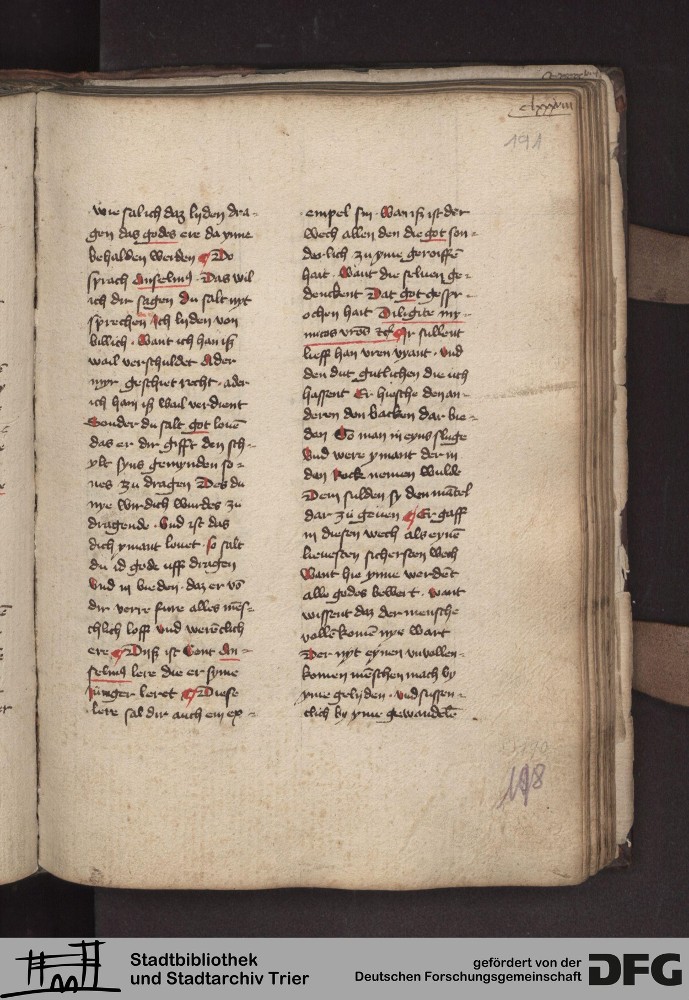 clxxxviii
191
wie sal ich daz lyden dra-
gen das godes ere da ynne
behalden werden Do
sprach Anselmus Das wil
ich dir sagen du salt nyt
sprechen ich lyden von
billich. Want ich han iß
wail verschuldet Ader
myr geschiet recht. ader
ich hain iß wail verdient
Sonder du salt got louē
das er dir gifft den sch-
ylt syns gemynden so-
nes zu dragen Des du
nye wirdich wurdes zu
dragende. Vnd ist das
dich ymant louet. so salt
du id gode uff dragen
Vnd in bieden. daz er vō
dir verre fure alles mēs-
chlich loff vnd werētlich
ere Diß ist Sent An-
selmus lere die er syme
junger leret Diese
lere sal dir auch ein ex-
empel sin. Wan iß ist der
wech allen den die got son-
der lich zu yme geroiffē
hait. Want die seluen ge-
denckent Dat got gespr-
ochen hait Diligite ini-
micos vr̄os etc̄ Ir sullent
lieff han vren vyant. Vnd
den dut gutlichen die uch
hassent Er hiesche den an-
deren den backen dar bie-
den So man in eyns sluge
Vnd were ymant der in
den Rock nemen wulde
Dem sulden sy den mātel
dar zů geuen Er gaff
in diesen wech als eynē
lieuesten sichersten wech
Want hie ynne werdēt
alle godes bewert. want
wissent daz der mensche
vollēkomē nye wart
Der nyt eynen vnvollen-
komen mēschen mach by
yme gelyden. Vnd sussen-
clich by yme gewandelē
198
Stadtbibliothek
und Stadtarchiv Trier
gefördert von der
Deutschen Forschungsgemeinschaft
DFG